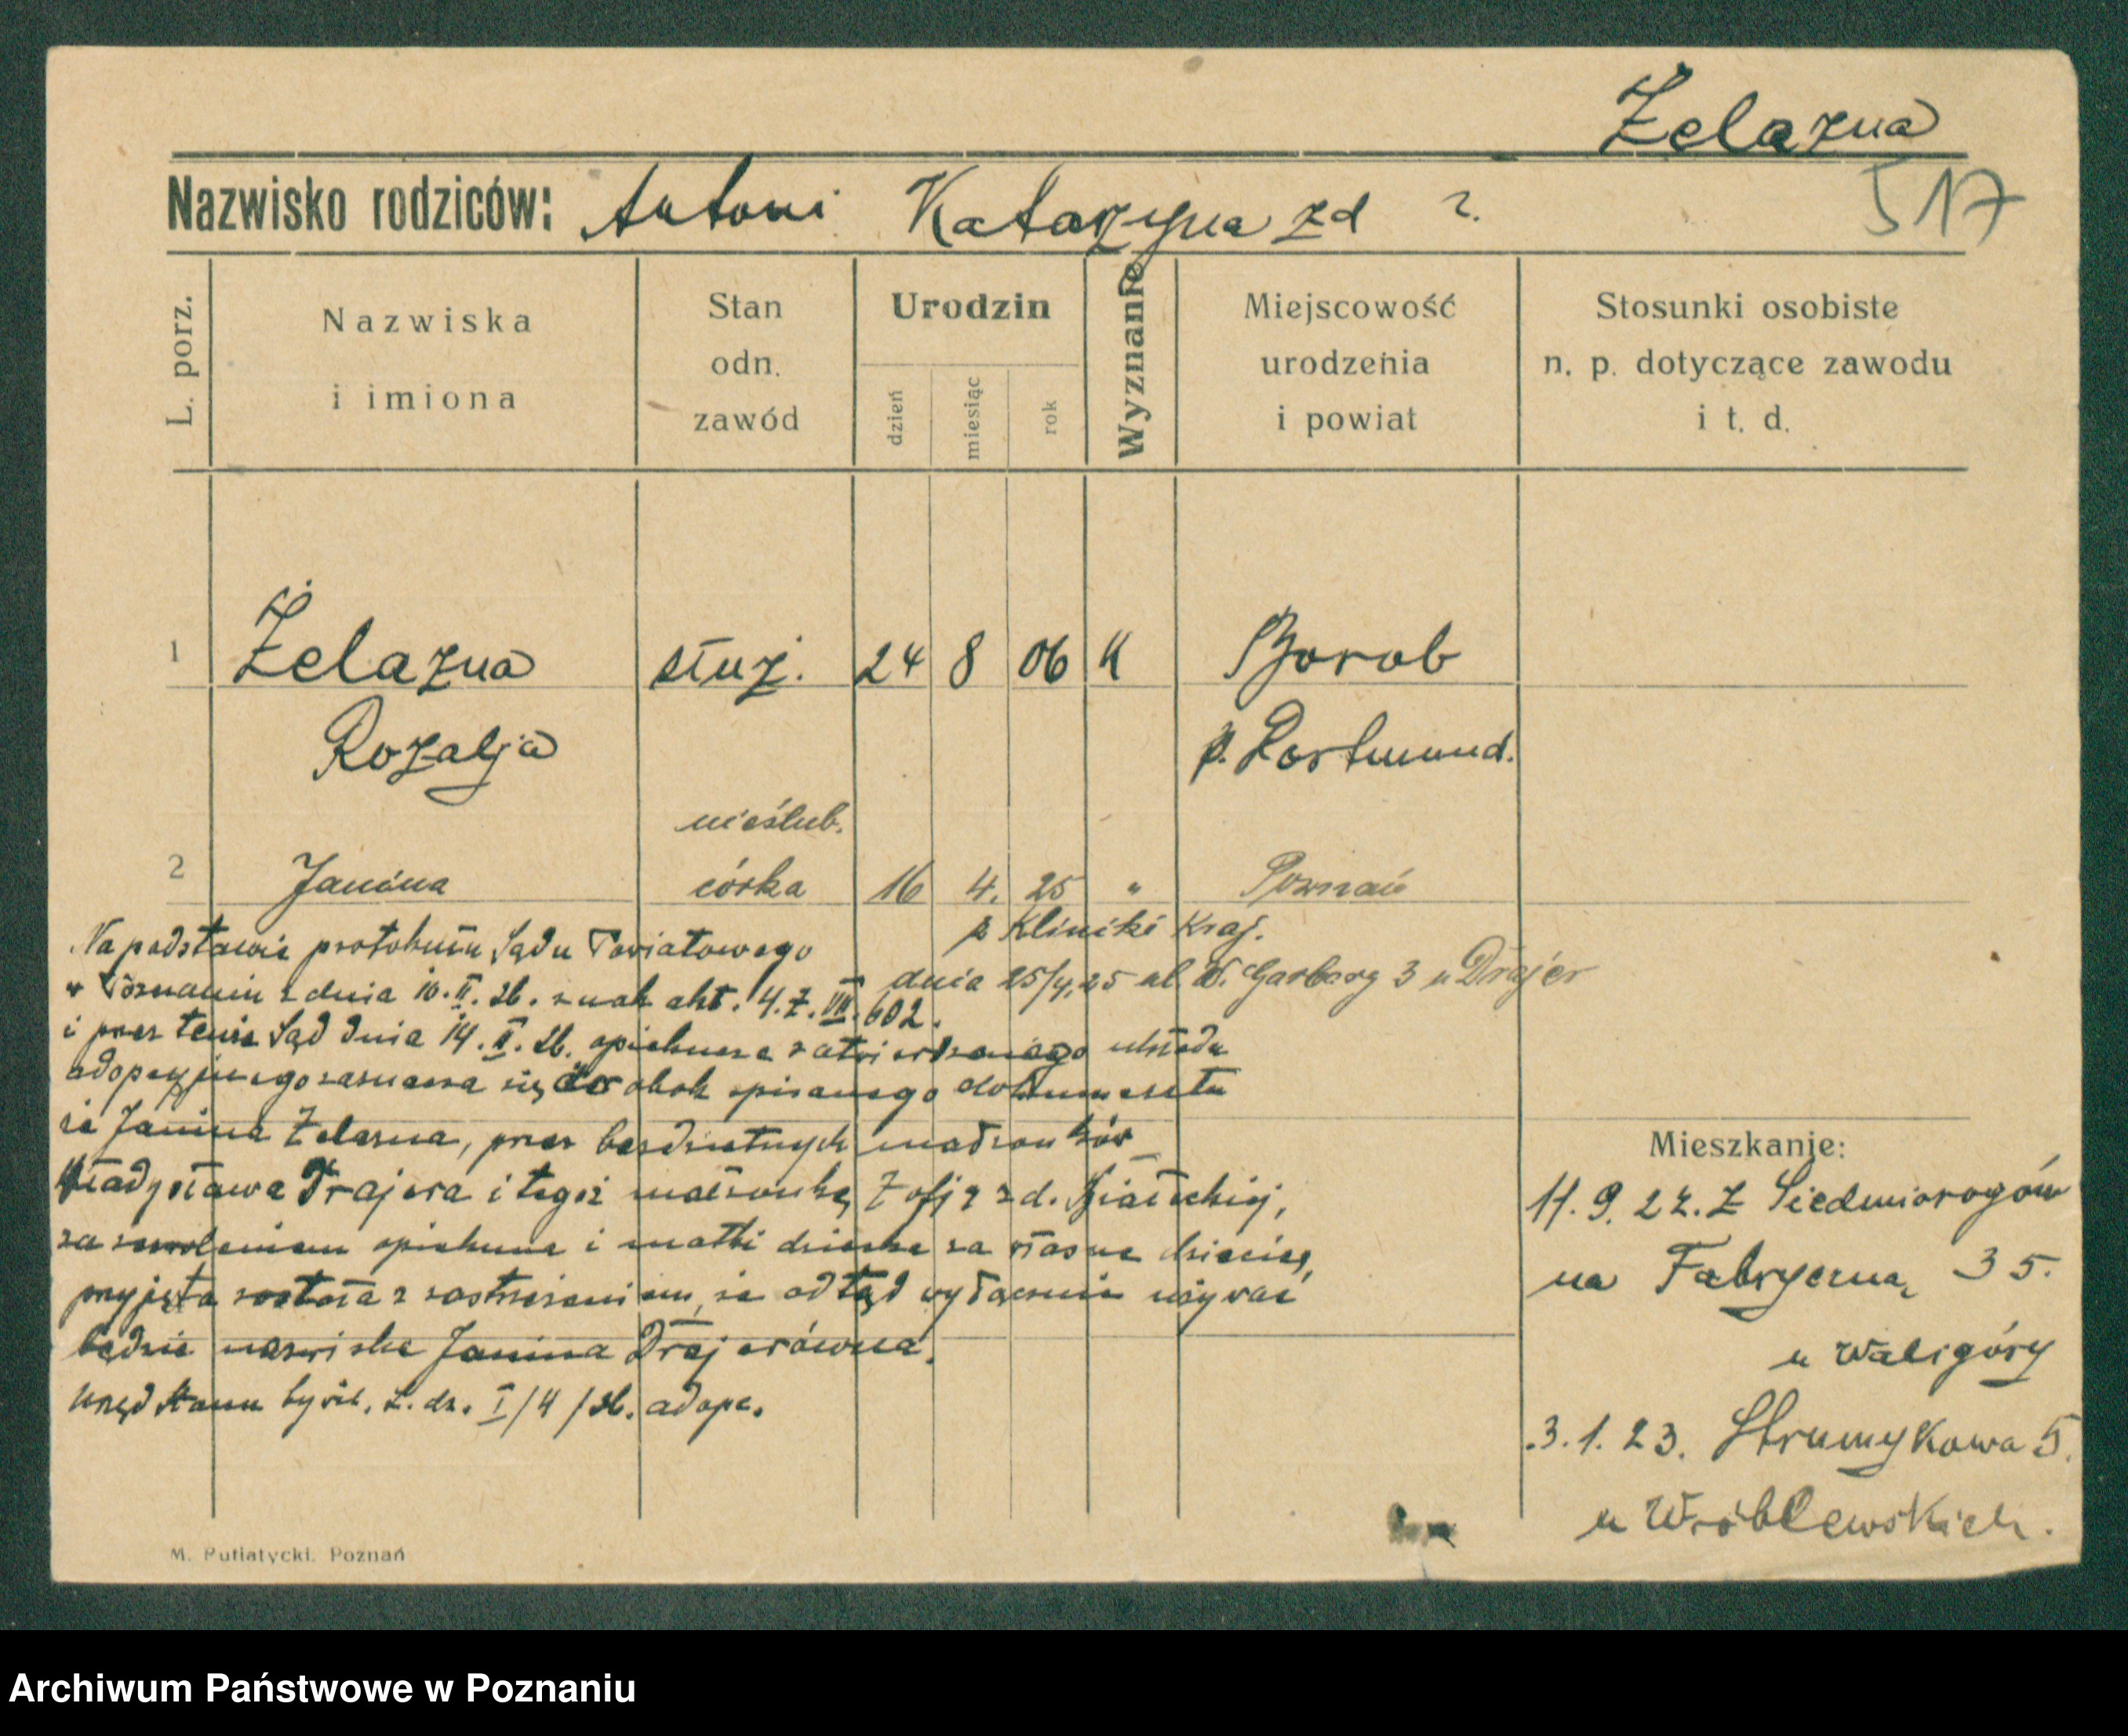 Żelazna
517
Nazwisko rodziców: Antoni Katarzyna zd ?.
L. porz.
Nazwiska
i imiona
Stan
odn.
zawód
Urodzin
dzień
miesiąc
rok
Wyznanie
Miejscowość
urodzenia
i powiat
Stosunki osobiste
n. p. dotyczące zawodu
i t. d.
1 Żelazna służ. 24 8 06 K Borob
Rozalja p. Dortmund.
nieślub.
2 Janina córka 16 4. 25 " Poznań
z Kliniki Kraj.
dnia 25/4.25 ul W. Garbary 3 u Drajer
Na podstawie protokułu Sądu Powiatowego
w Poznaniu z dnia 10.II.26. znak akt. 4.Z.VII.602.
i przez tenże Sąd dnia 14.II.26. opiekuńcze zatwierdzonego układu
adopcyjnego zaznacza się do obok spisanego dokumentu
że Janina Żelazna, przez bezdzietnych małżonków
Władysława Drajera i tegoż małżonkę Zofję zd. Białeckiej,
za zezwoleniem opiekuna i matki dziecka za własne dziecię,
przyjęta została z zastrzeżeniem, że odtąd wyłącznie używać
będzie nazwiska Janina Drajerówna.
Urząd Stanu Cywil. L. dz. I/4/26. adopc.
Mieszkanie:
11. 9. 22. Z Siedmiorogów
na Fabryczną 35.
u Waligóry
3. 1. 23. Strumykowa 5.
u Wróblewskich.
M. Putiatycki. Poznań
Archiwum Państwowe w Poznaniu